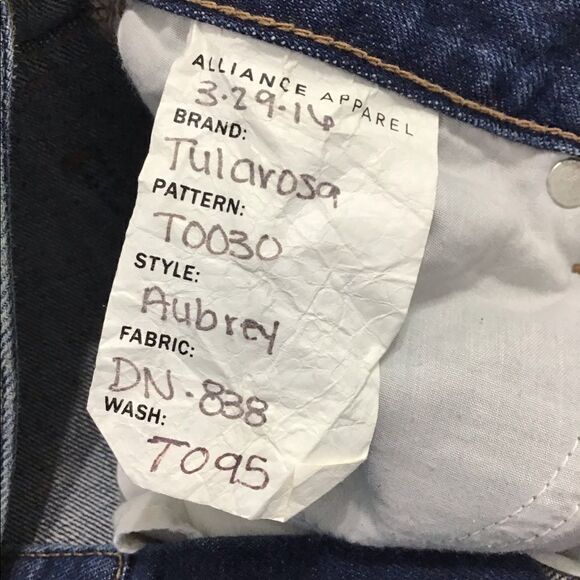 ALLIANCE APPAREL
3.29.16
BRAND:
Tularosa
PATTERN:
T0030
STYLE:
Aubrey
FABRIC:
DN.838
WASH:
T095